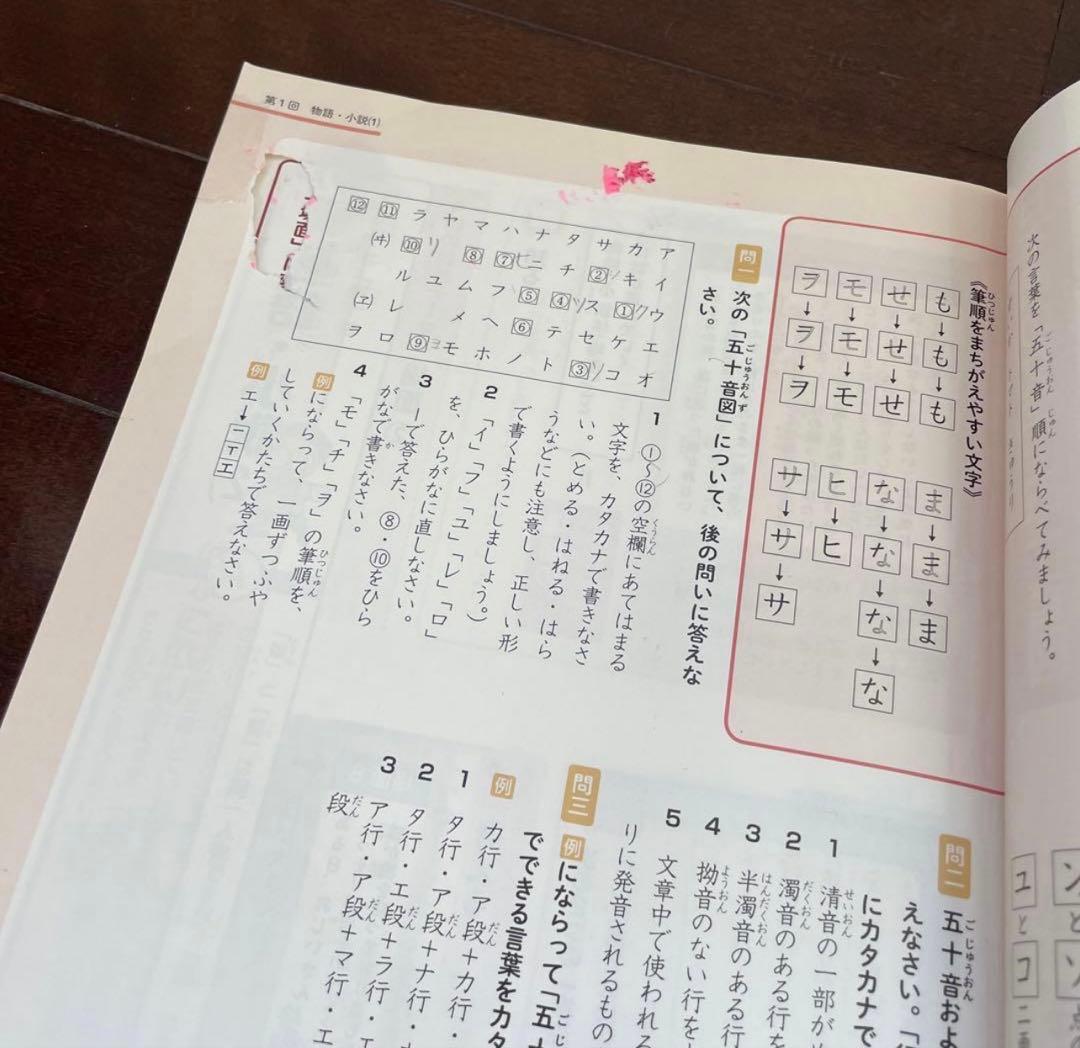 第1回 物語・小説(1)
次の言葉を「五十音」順にならべてみましょう。
《筆順をまちがえやすい文字》
も→も→も
せ→せ→せ
モ→モ→モ
ヲ→ヲ→ヲ
ま→ま→ま
な→な→な→な
ヒ→ヒ
サ→サ→サ
問一 次の「五十音図」について、後の問いに答えな
さい。
ア イ ウ エ オ
カ キ ① ク ケ コ
サ ② ス セ ③ ソ
タ チ ④ ツ テ ト
ナ ニ ⑤ ⑥ ノ
ハ ⑦ ヒ フ ヘ ホ
マ ⑧ ム メ モ
ヤ ユ ⑨ ヨ
ラ ⑩ リ ル レ ロ
⑪ (ヰ) (ヱ) ヲ
⑫
1 ①〜⑫の空欄にあてはまる
文字を、カタカナで書きなさ
い。(とめる・はねる・はら
うなどにも注意し、正しい形
で書くようにしましょう。)
2 「イ」「フ」「ユ」「レ」「ロ」
を、ひらがなに直しなさい。
3 1で答えた、⑧・⑩をひら
がなで書きなさい。
4 「モ」「チ」「ヲ」の筆順を、
例にならって、一画ずつふや
していくかたちで答えなさい。
例 エ→一丅エ
問二 五十音およ
えなさい。
にカタカナで
1 清音の一部が
2 濁音のある行を
3 半濁音のある行
4 拗音のない行を
5 文章中で使われる
りに発音されるもの
問三 例にならって「五十
でできる言葉をカタ
例 カ行・ア段+カ行・
1 タ行・ア段+ナ行・
2 タ行・エ段+ラ行・エ
3 ア行・ア段+マ行・エ
段
ン と ソ
ユ と コ 二画